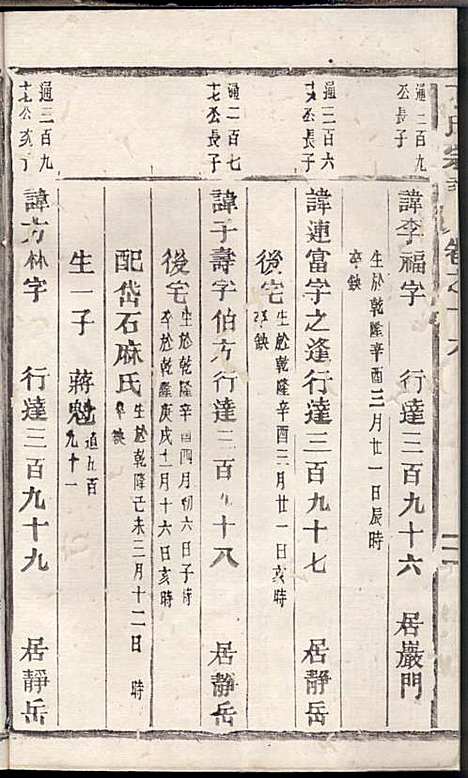 氏宗譜 卷之十六
通三百九
十七公長子
諱李福字 行達三百九十六 居巖門
生於乾隆辛酉三月廿一日辰時
卒缺
通三百六
十八公長子
諱連富字之逢行達三百九十七 居靜岳
後宅 生於乾隆辛酉三月廿一日亥時
卒缺
通二百七
十七公長子
諱子壽字伯方行達三百九十八 居靜岳
後宅 生於乾隆辛酉四月初六日子時
卒於乾隆庚戌十二月十六日亥時
配岱石麻氏 生於乾隆己未三月十二日 時
卒缺
生一子 蔣魁 通九百
九十一
通三百九
十七公次子
諱方林字 行達三百九十九 居靜岳